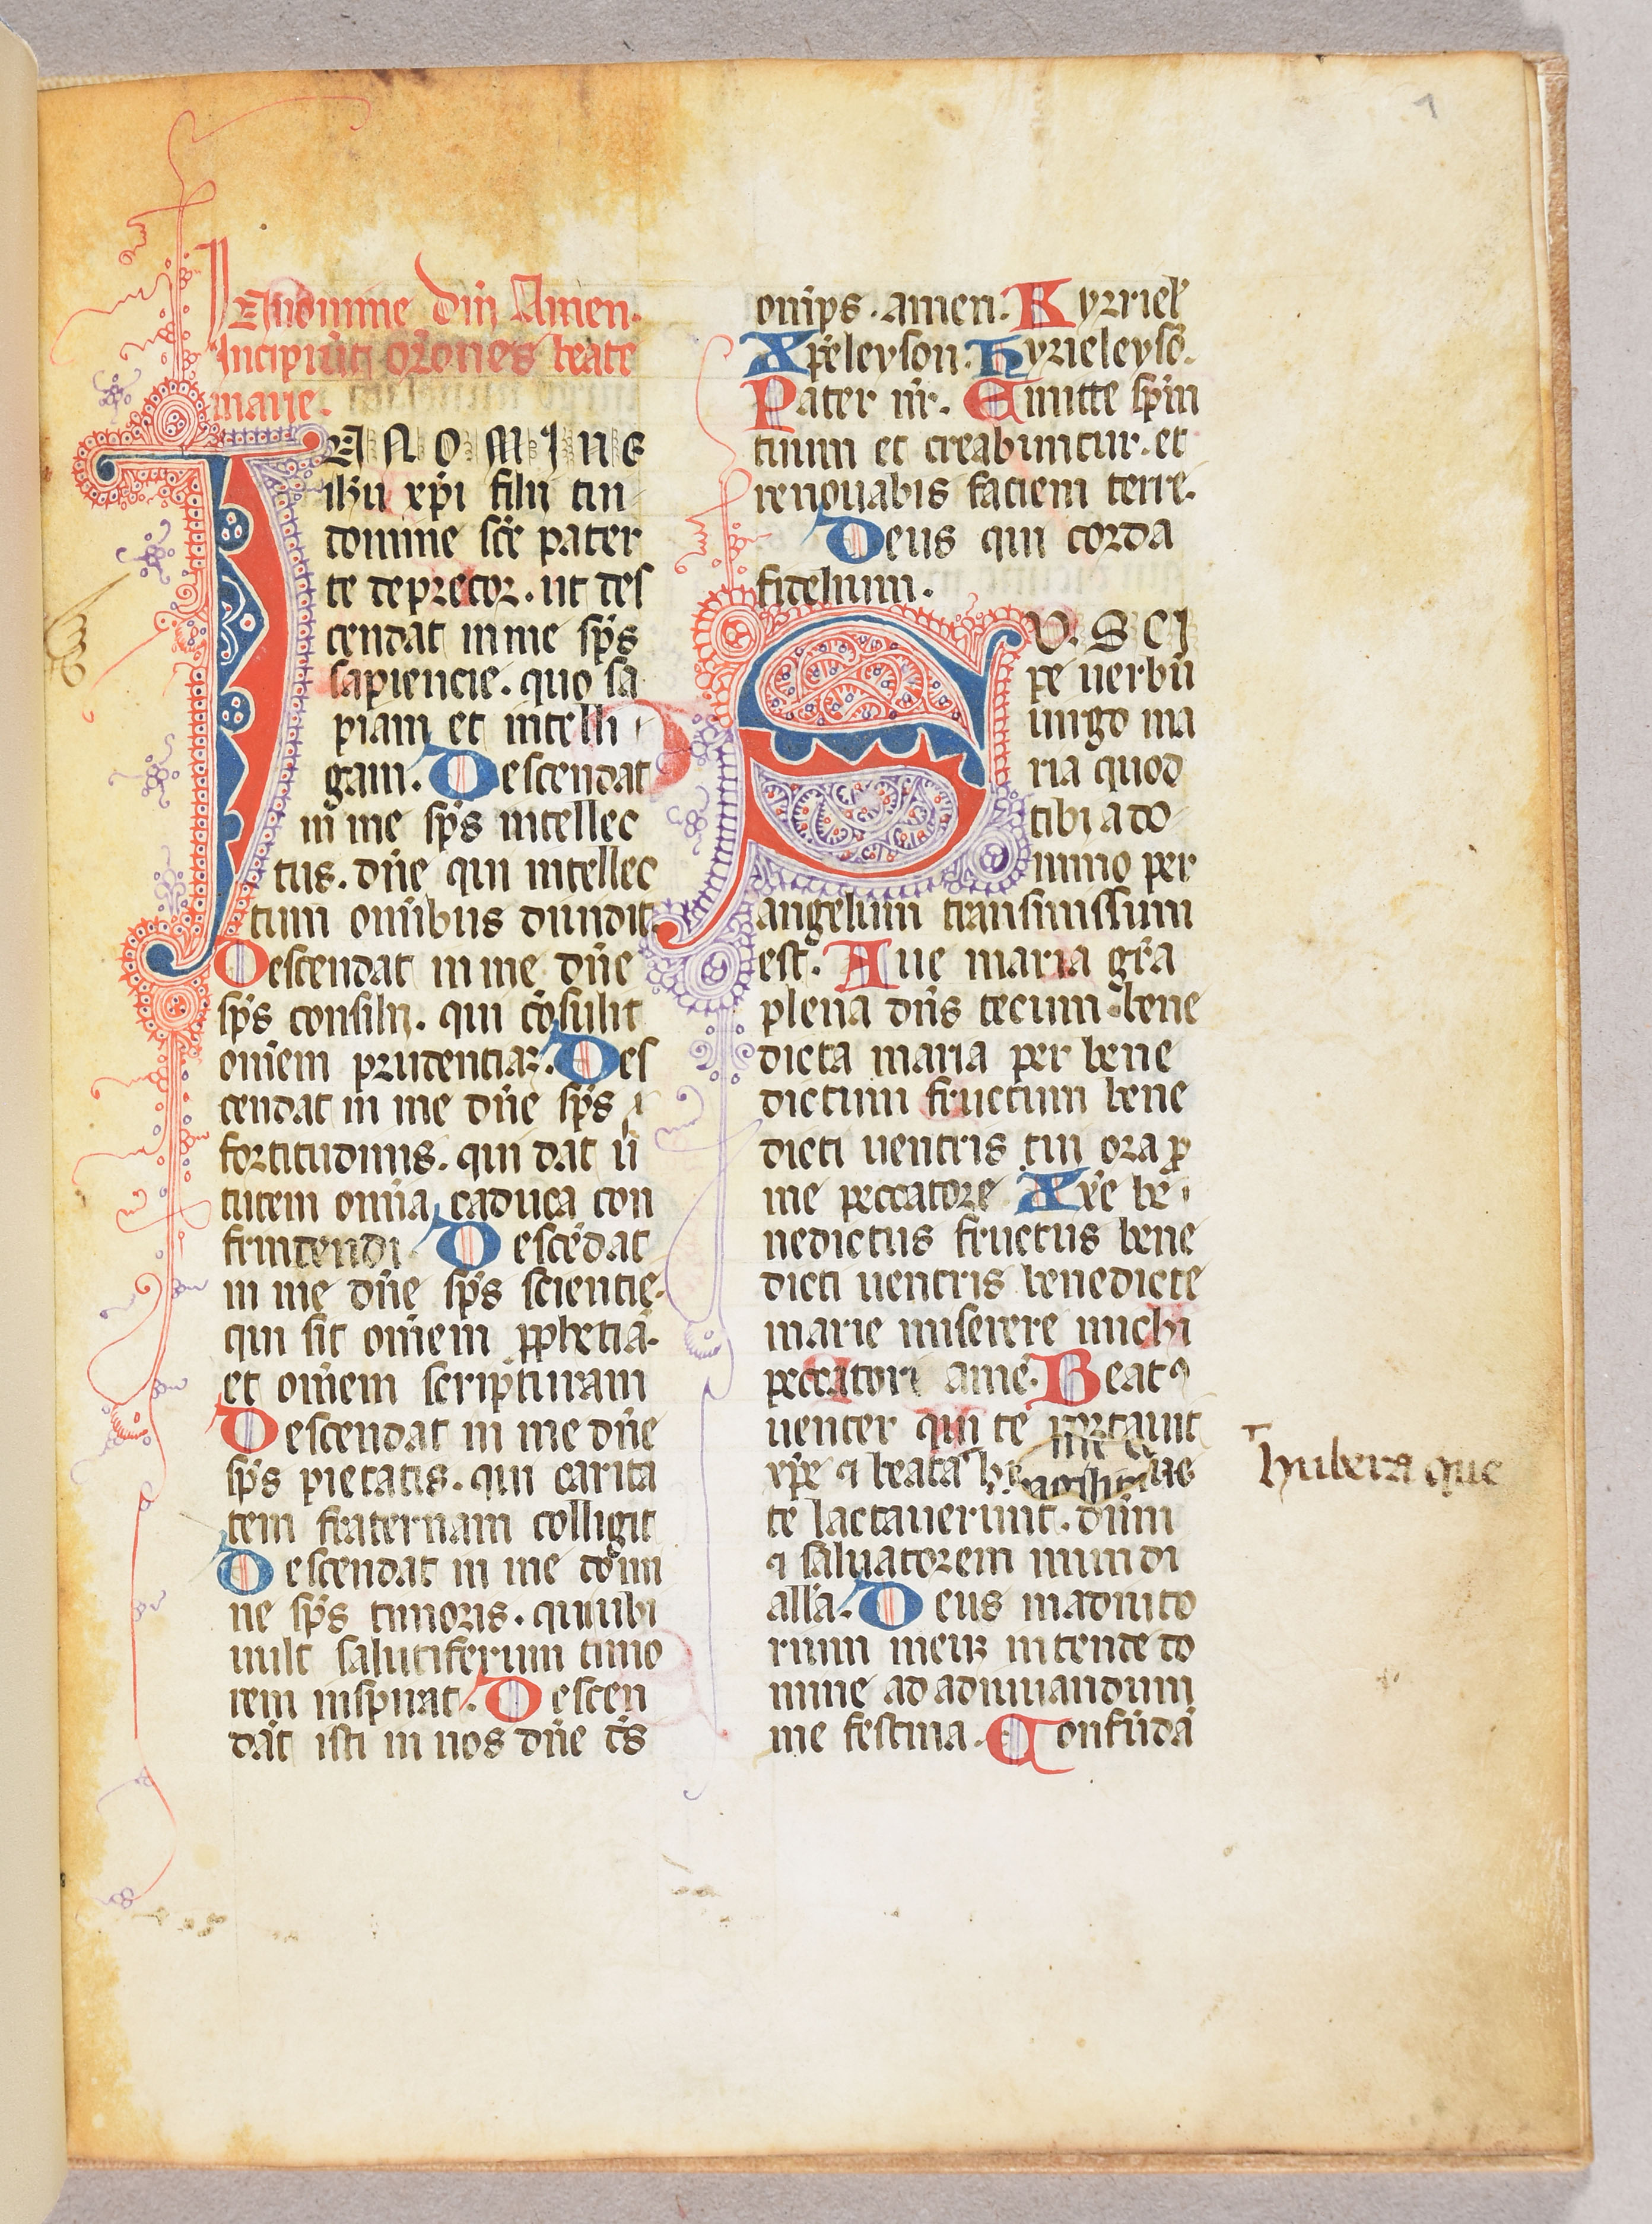 1
IN nomine dñi Amen.
Incipiũt orõnes beate
marie.
IE NOMINE
ihũ xp̃i filii tui
domine sc̃e pater
te deprecor. ut des
cendat in me sp̃s
sapiencie. quo sa
piam et intelli
gam. Descendat
in me sp̃s intellec
tus. dñe qui intellec
tum om̃ibus diuidit
Descendat in me dñe
sp̃s consilii. qui cõsulit
om̃em prudentiaꝫ. Des
cendat in me dñe sp̃s
fortitudinis. qui dat ũ
tutem om̃ia caduca con
frintendi. Descẽdat
in me dñe sp̃s scientie.
qui sit om̃em ꝓphetiã.
et om̃em scripturam
Descendat in me dñe
sp̃s pietatis. qui carita
tem fraternam colligit
Descendat in me domi
ne sp̃s timoris. qui ubi
uult salutiferum timo
rem inspirat. Descen
dat isti in nos dñe
om̃ips. amen. Kyrriel̃
Xp̃eleyson. Kyrieleysõ.
Pater nr̃. Emitte sp̃m
tuum et creabuntur. et
renouabis faciem terre.
Deus qui corda
fidelium.
SU. S CI
pe uerbũ
uirgo ma
ria quod
tibi a do
mino per
angelum transmissum
est. Aue maria gr̃a
plena dñs tecum. bene
dicta maria per bene
dictum fructum bene
dicti uentris tui ora ꝓ
me peccatore Xp̃e be
nedictus fructus bene
dicti uentris benedicte
marie miserere michi
peccatori amẽ. Beatꝰ
uenter qui te portauit
xp̃e ⁊ beata
te lactauerunt. dñm
⁊ saluatorem mundi
all̃a. Deus in adiuto
rium meuꝫ intende do
mine ad adiuuandum
me festina. Confũdã
hubera que